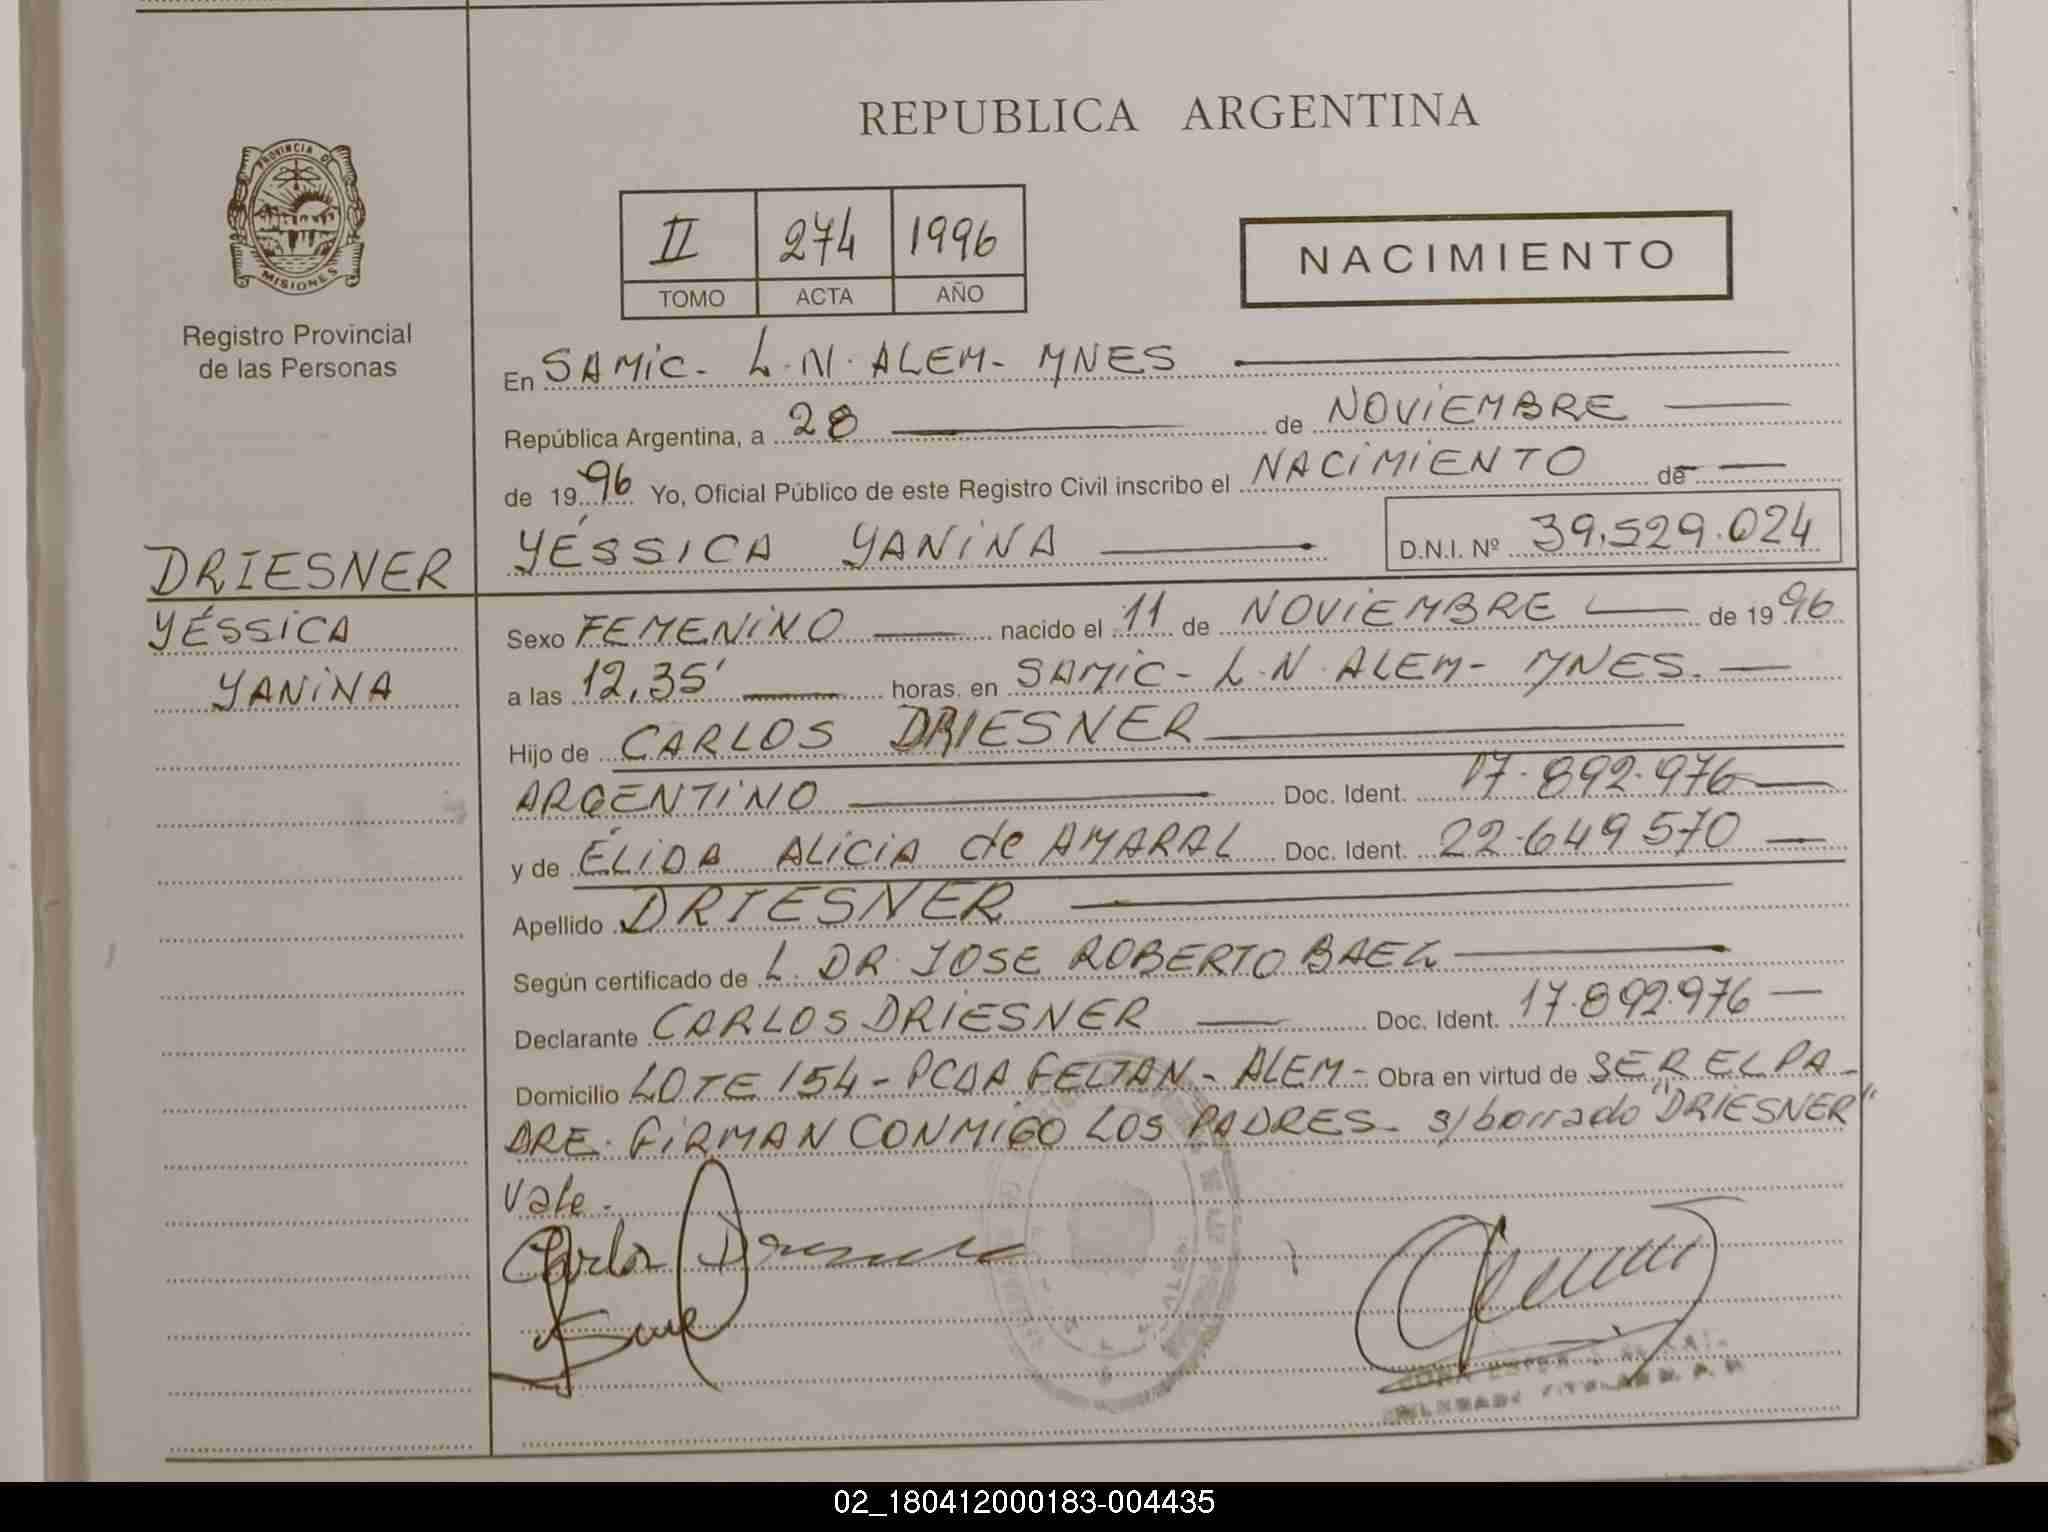 REPUBLICA ARGENTINA
PROVINCIA DE
MISIONES
Registro Provincial
de las Personas
II 274 1996
TOMO ACTA AÑO
NACIMIENTO
En SAMIC - L.N. ALEM - MNES
República Argentina, a 28 de NOVIEMBRE
de 1996 Yo, Oficial Público de este Registro Civil inscribo el NACIMIENTO de
YÉSSICA YANINA D.N.I. Nº 39.529.024
DRIESNER
YÉSSICA
YANINA
Sexo FEMENINO nacido el 11 de NOVIEMBRE de 1996
a las 12,35' horas, en SAMIC - L.N. ALEM - MNES.
Hijo de CARLOS DRIESNER
ARGENTINO Doc. Ident. 17.892.976
y de ÉLIDA ALICIA de AMARAL Doc. Ident. 22.649570
Apellido DRIESNER
Según certificado de L. DR. JOSE ROBERTO
Declarante CARLOS DRIESNER Doc. Ident. 17.892.976
Domicilio LOTE 154 - PCDA FELTAN - ALEM - Obra en virtud de SER EL PA-
DRE. FIRMAN CONMIGO LOS PADRES - s/borrado "DRIESNER"
Vale.
Carlos
02_180412000183-004435